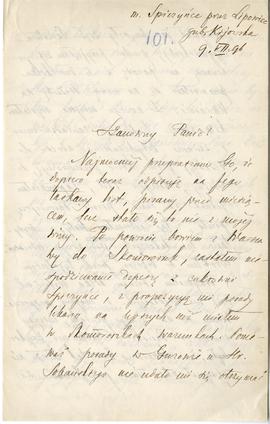 m. Spiczyńce przez Lipowiec
gub. Kijowska
101.
9. VII. 96
Szanowny Panie!
Najmocniej przepraszam Go, że
dopiero teraz odpisuję na Jego
łaskawy list, pisany przed miesią-
cem, lecz stało się to nie z mojej
winy. Po powrocie bowiem z Warsza
wy do Skomoroszek, zastałem nie-
spodziewanie depeszę z cukrowni
Spiczyńce, z propozycyą mi posady
lekarza na lepszych niż miałem
w Skomoroszkach warunkach. Ponie-
waż posady w Guzowie u Hr.
Sobańskiego nie udało mi się otrzymać